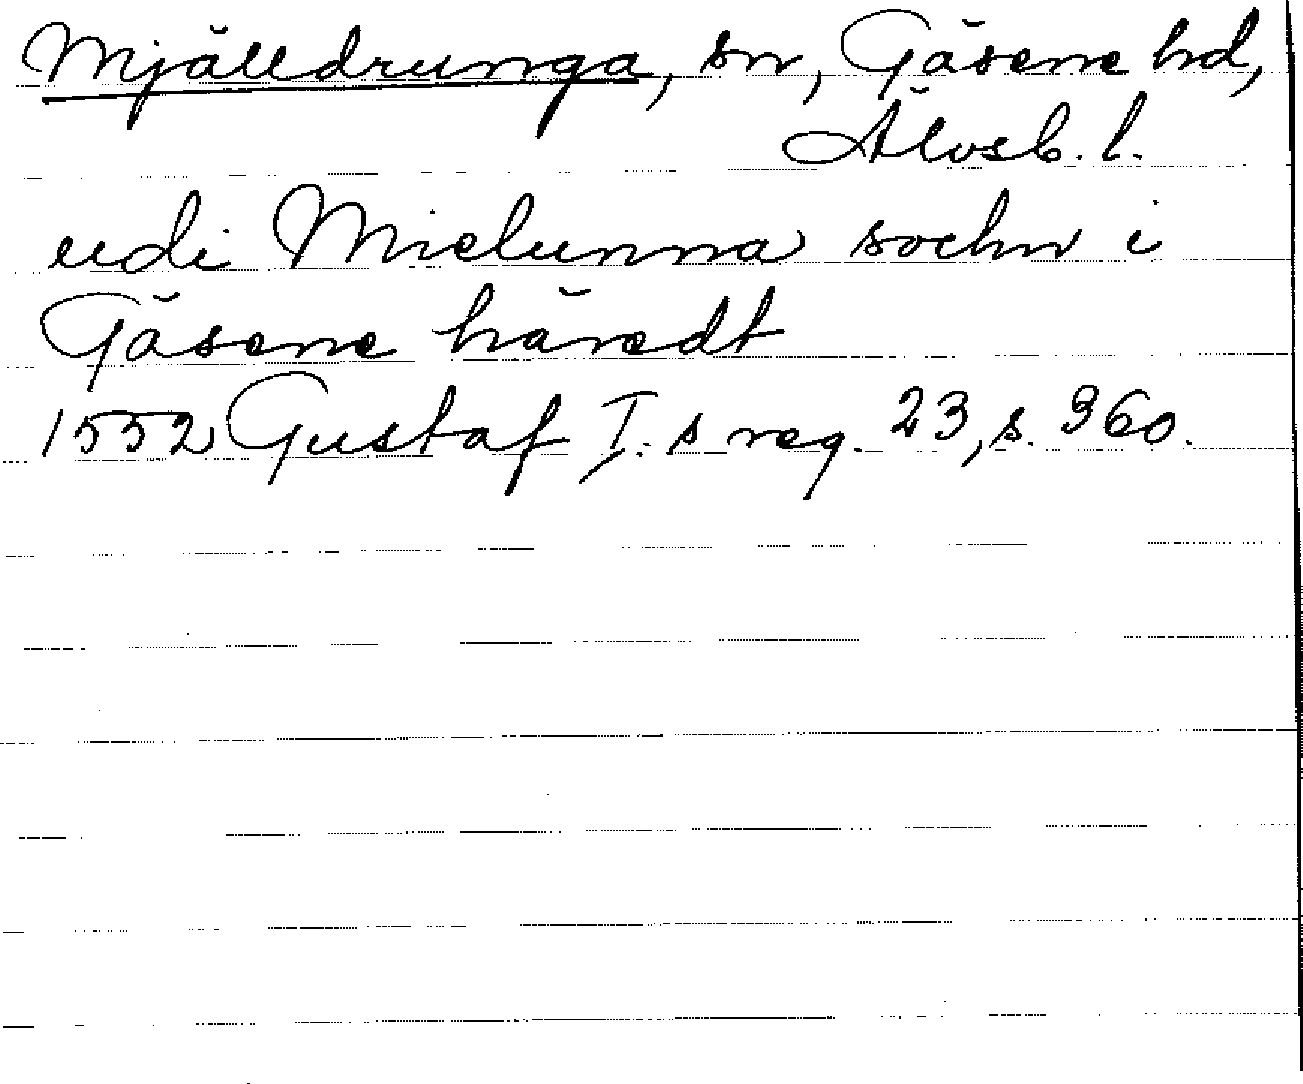 Mjälldrunga, sn, Gäsene hd,
Älvsb. l.
udi Mielunna sochn i
Gäsene häredt
1552 Gustaf I:s reg. 23, s. 360.